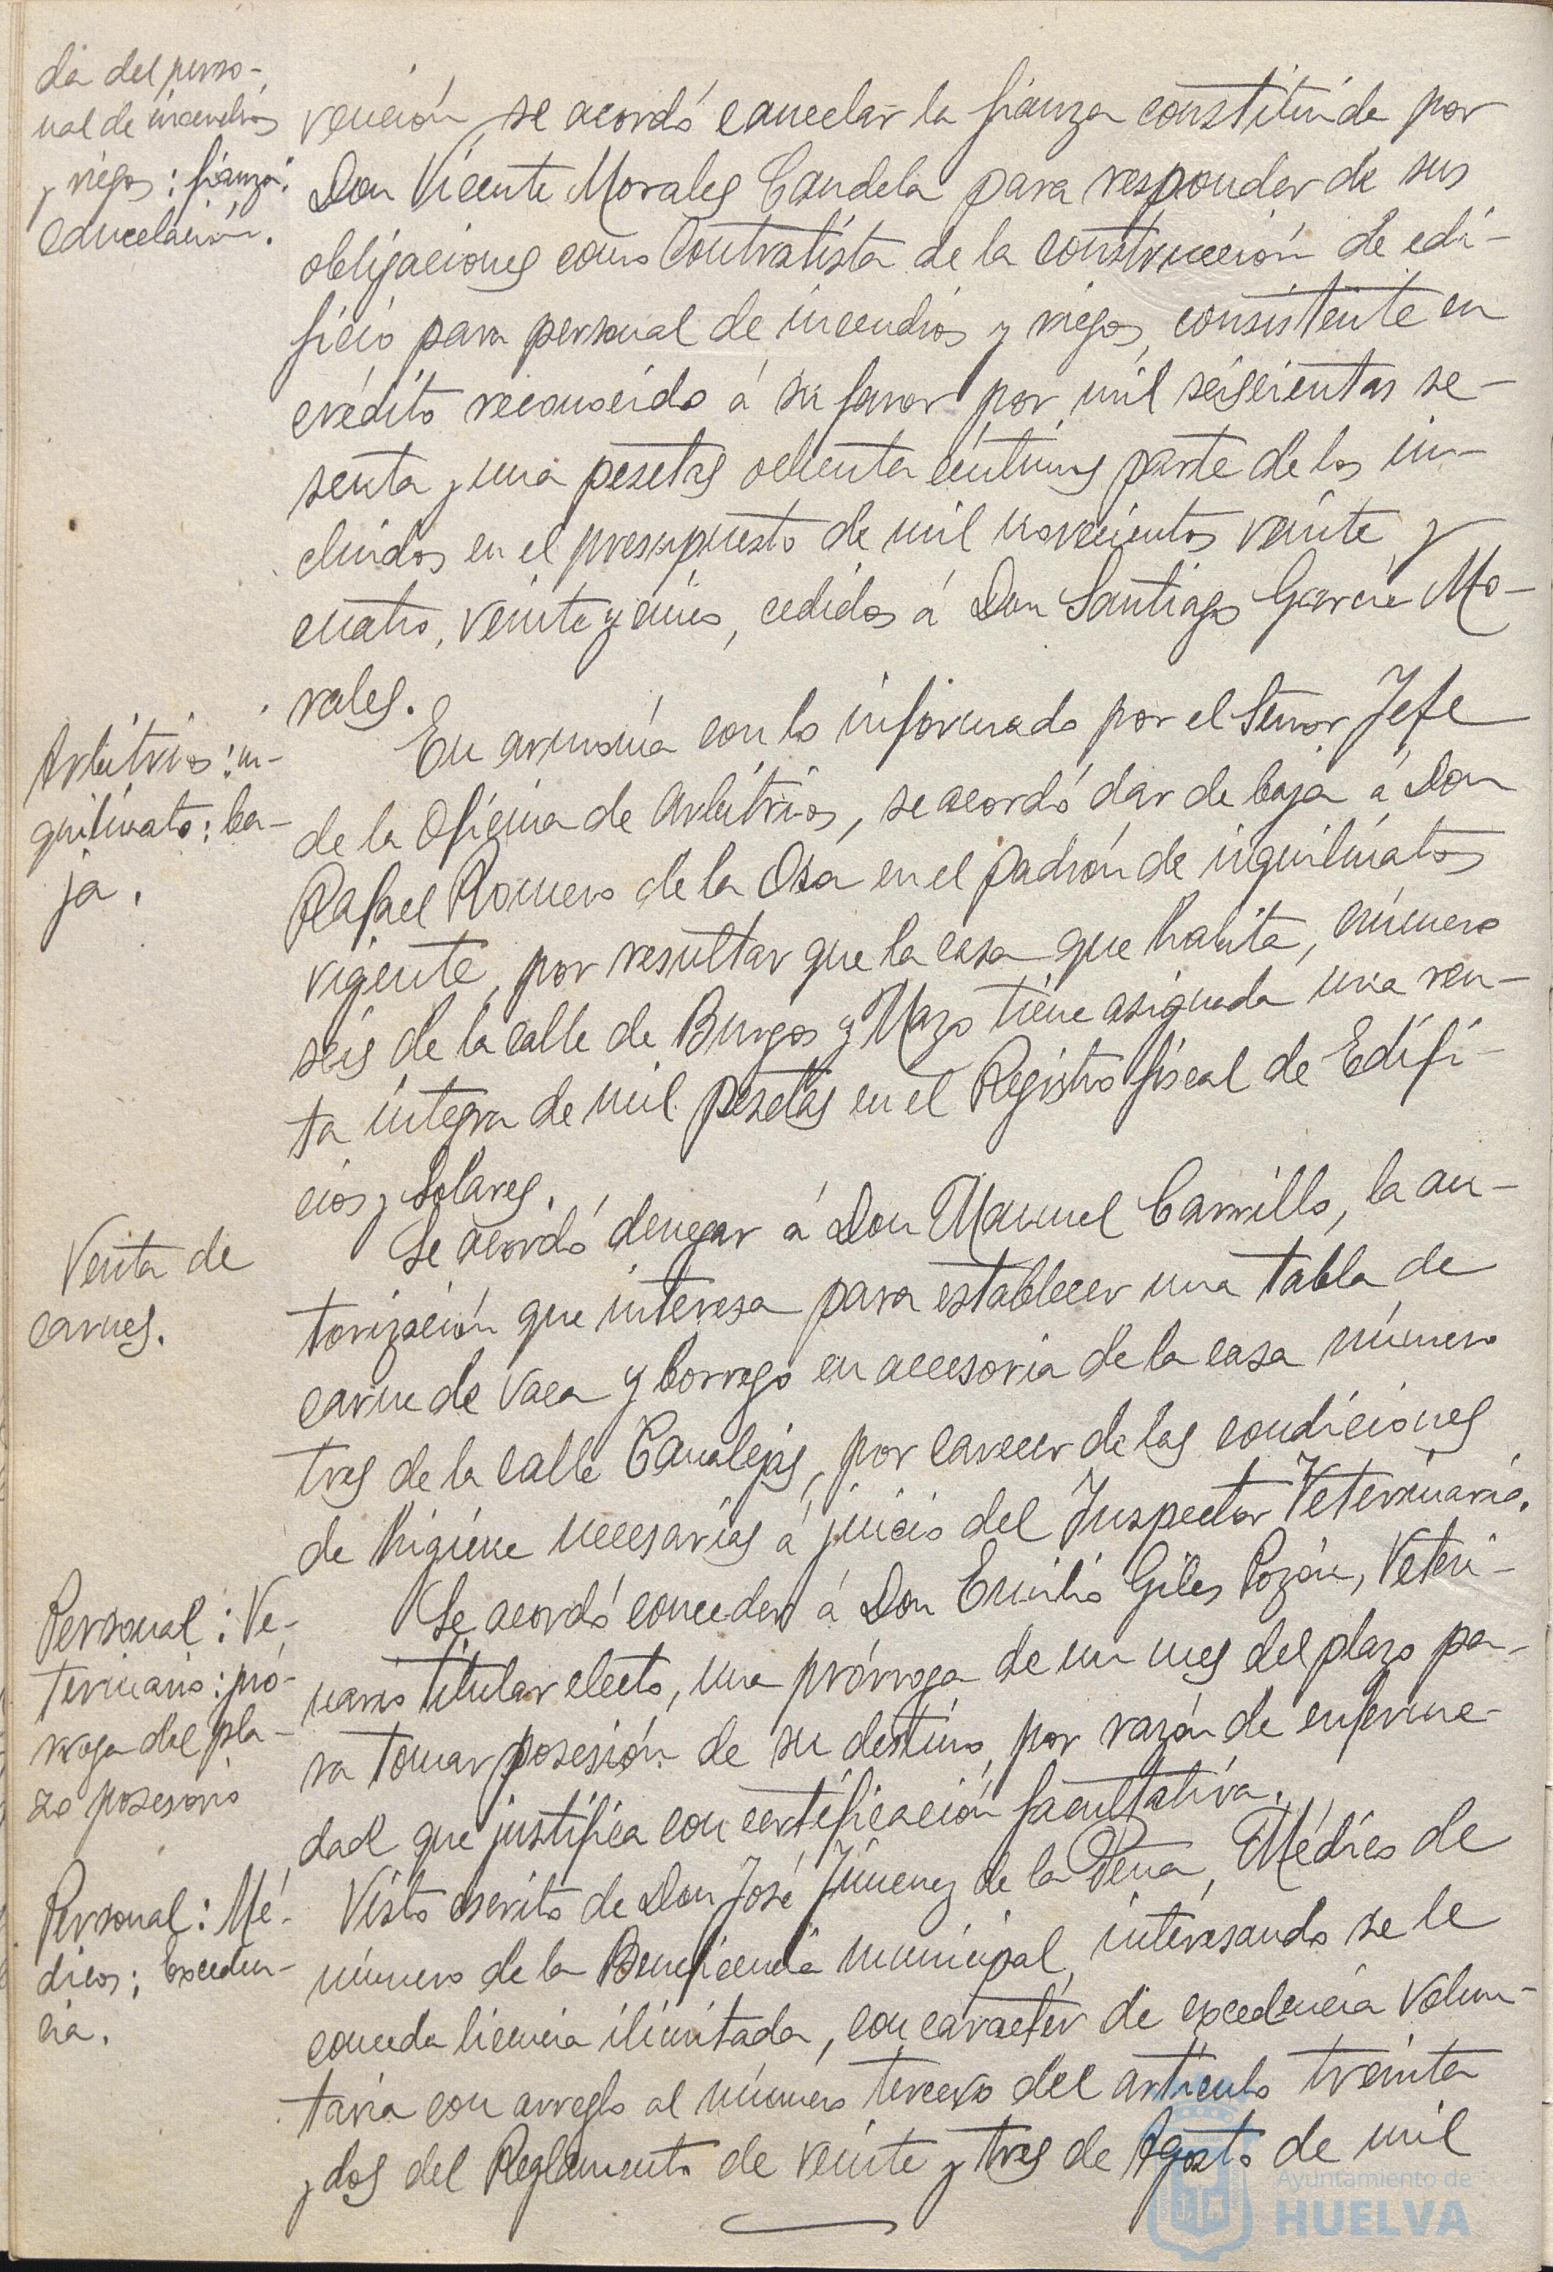 da del perso-
nal de incendios
y riegos: fianza:
cancelación.
vención, se acordó cancelar la fianza constituída por
Don Vicente Morales Candela para responder de sus
obligaciones como Contratista de la construcción de edi-
ficio para personal de incendios y riegos, consistente en
crédito reconocido á su favor por mil seiscientas se-
senta y una pesetas ochenta céntimos parte de los in-
cluidos en el presupuesto de mil novecientos veinte y
cuatro, veinte y cinco, cedidos á Don Santiago García Mo-
rales.
Arbitrios: in-
quilinato: ba-
ja.
En armonía con lo informado por el Señor Jefe
de la Oficina de Arbitrios, se acordó dar de baja á Don
Rafael Romero de la Osa en el padrón de inquilinatos
vigente, por resultar que la casa que habita, número
seis de la calle de Burgos y Mazo tiene asignada una ren-
ta íntegra de mil pesetas en el Registro fiscal de Edifi-
cios y Solares.
Venta de
carnes.
Se acordó denegar á Don Manuel Carrillo, la au-
torización que interesa para establecer una tabla de
carne de vaca y borrego en accesoria de la casa número
tres de la calle Canalejas, por carecer de las condiciones
de higiene necesarias á juicio del Inspector Veterinario.
Personal: Ve-
terinario: pró-
rroga del pla-
zo posesorio
Se acordó conceder á Don Emilio Giles Pozón, Veteri-
nario titular electo, una prórroga de un mes del plazo pa-
ra tomar posesión de su destino, por razón de enferme-
dad que justifica con certificación facultativa.
Personal: Mé-
dicos: Exceden-
cia.
Visto escrito de Don José Jimenez de la Peña, Médico de
número de la Beneficencia municipal, interesando se le
conceda licencia ilimitada, con carácter de excedencia volun-
taria con arreglo al número tercero del artículo treinta
y dos del Reglamento de veinte y tres de Agosto de mil
Ayuntamiento de
HUELVA